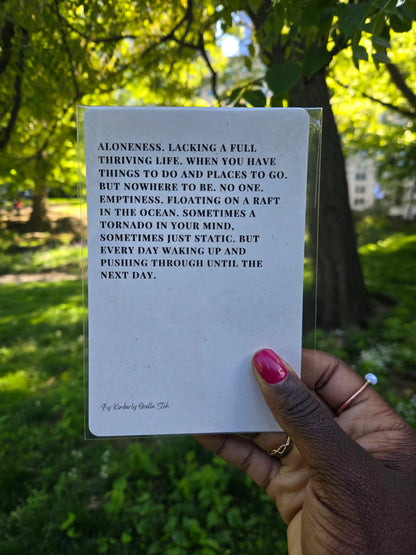 ALONENESS. LACKING A FULL
THRIVING LIFE. WHEN YOU HAVE
THINGS TO DO AND PLACES TO GO.
BUT NOWHERE TO BE. NO ONE.
EMPTINESS. FLOATING ON A RAFT
IN THE OCEAN. SOMETIMES A
TORNADO IN YOUR MIND,
SOMETIMES JUST STATIC. BUT
EVERY DAY WAKING UP AND
PUSHING THROUGH UNTIL THE
NEXT DAY.
By Kimberly